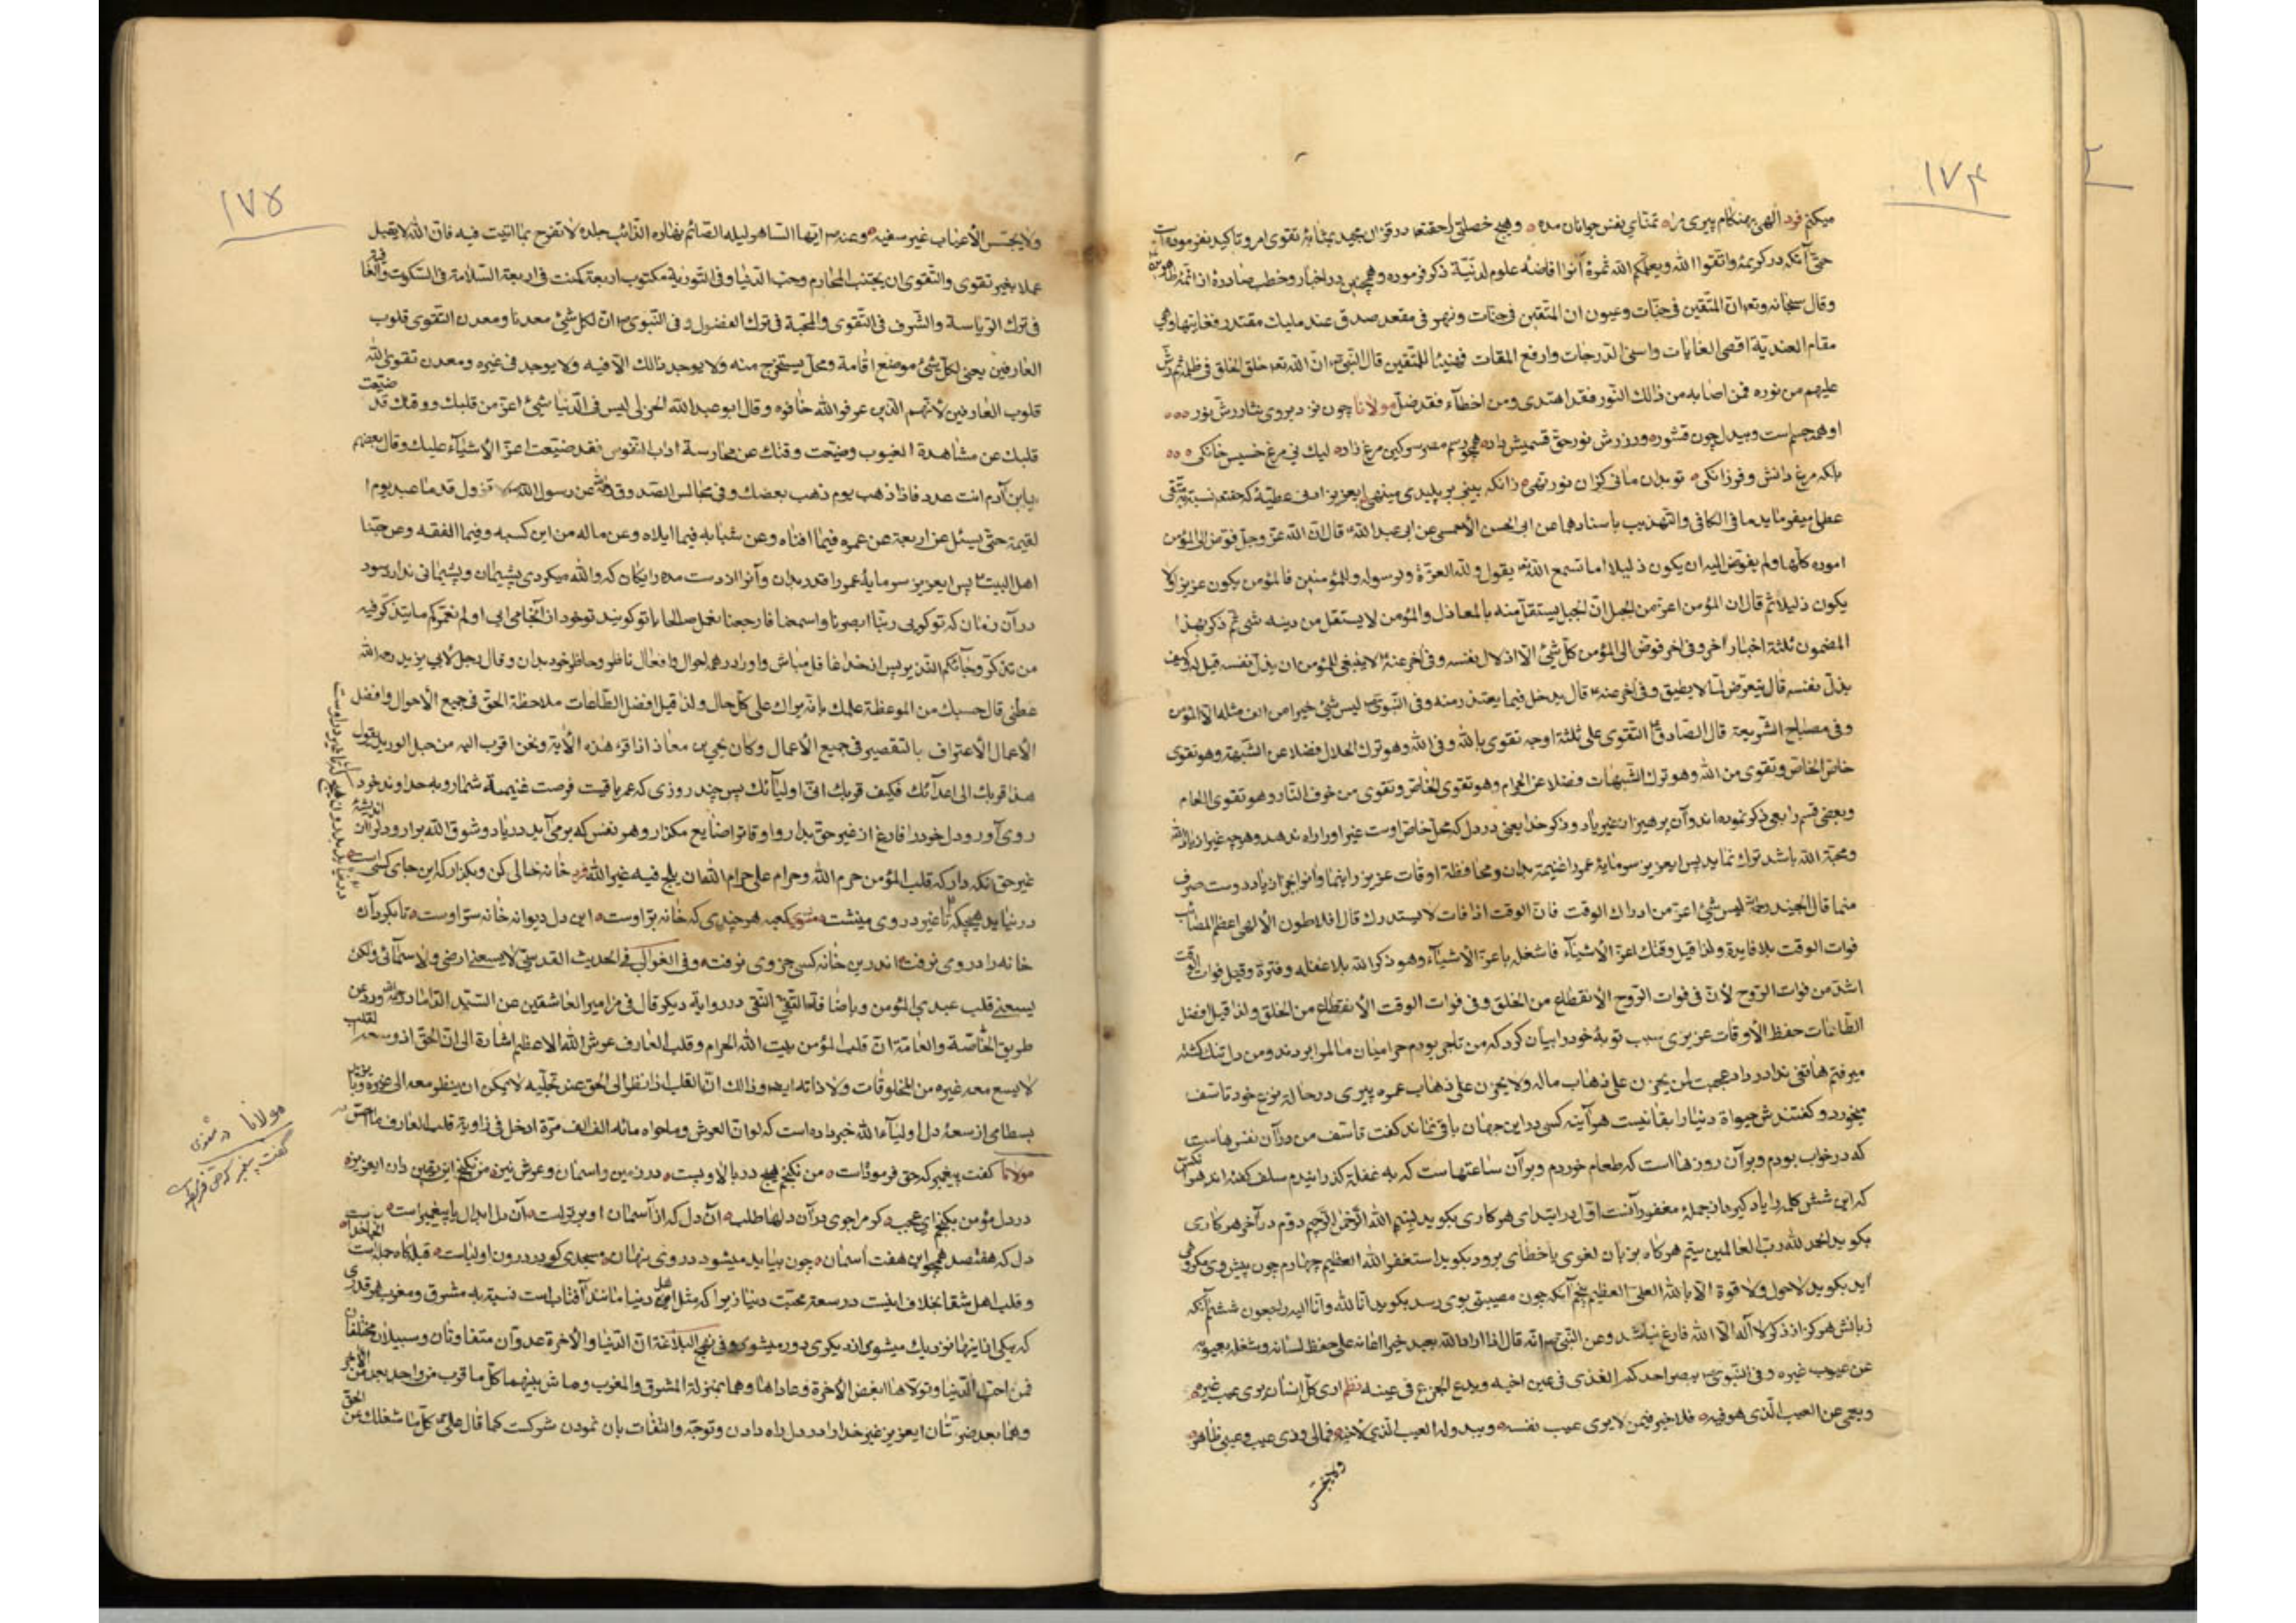 ١٧٤
میکنم فرد الهی بهنکام پیری مراه تمنای نفس جوانان مده ه وهیچ خصلتی را حقتعه در قران مجید بمثابهٔ تقوی امر و تاکید نفرموده است
حتی آنکه در کریمهٔ واتقوا الله ویعلمکم الله ثمرهٔ آنرا افاضهٔ علوم لدنیّة ذکر فرموده وهمچنین در اخبار وخطب صادرهٔ از ائمّهٔ
وقال سبحانه وتعه انّ المتّقین فی جنّات وعیون ان المتقین فی جنّات ونهر فی مقعد صدق عند ملیك مقتدر فغایتها وهی
مقام العندیّة اقصی الغایات واسنی الدرجات وارفع المقات فهنیئا للمتّقین قال النّبیّ انّ الله تعه خلق الخلق فی ظلمة ثم رشّ
علیهم من نوره فمن اصابه من ذالك النّور فقد اهتدی ومن اخطأء فقد ضلّ مولانا چون نزد بروی نثار رشّ نور ٥٥٥
او همه جسم است و بیدل چون قشوره ور زرش نور حق قسمیش داده همچو رسم مصر سرکین مرغ زاده لیك نی مرغ خسیس خانکی ٥٥٥
بلکه مرغ دانش و فرزانکی ه تو بدان مانی کزان نور تهی ه زانکه بینی بر پلیدی مینهی ایعزیز ادنی عطیّهٔ که حقتعه نسبة بمتّقی
عطا میفرماید ما فی الکافی والتهذیب باسنادهما عن ابی الحسن الأحمسی عن ابی عبد الله قال انّ الله عزّ وجلّ فوّض الی المؤمن
اموره کلّها ولم یفوّض الیه ان یکون ذلیلا اما تسمع الله یقول ولله العزّة ولرسوله وللمؤمنین فالمؤمن یکون عزیزا ولا
یکون ذلیلا ثم قال ان المؤمن اعزّ من الجبل انّ الجبل یستقلّ منه بالمعاول والمؤمن لا یستقل من دینه شئ ثم ذکر بهذا
المضمون ثلثة اخبار اخر وفی اخر فوّض الی المؤمن کلّ شئ الّا اذلال نفسه وفی اخر عنه لا ینبغی للمؤمن ان یذلّ نفسه قیل له وکیف
یذلّ نفسه قال یتعرّض لما لا یطیق وفی اخر عنه قال یدخل فیما یعتذر منه وفی النّبوی لیس شئ خیرا من الف مثله الّا المؤمن
وفی مصباح الشّریعة قال الصّادق التّقوی علی ثلثة اوجه تقوی بالله وفی الله وهو ترك الحلال فضلا عن الشّبهة وهو تقوی
خاصّ الخاصّ وتقوی من الله وهو ترك الشّبهات فضلا عن الحرام وهو تقوی الخاصّ وتقوی من خوف النّار وهو تقوی العام
وبعضی قسم رابعی ذکر نموده اند وآن پرهیز از غیر یاد وذکر خدا یعنی در دل که محلّ خاصّ اوست غیر او را راه ندهد وهرچه غیر از یاد الله
ومحبّة الله باشد ترك نماید پس ایعزیز سرمایهٔ عمر را غنیمة بدان ومحافظة اوقات عزیز را بنما وانرا جز از یاد دوست صرف
منما قال الجنید رحمه لیس شئ اعزّ من ادراك الوقت فانّ الوقت اذا فات لا یستدرك قال افلاطون الألهی اعظم المصائب
فوات الوقت بلا فایدة ولذا قیل وقتك اعزّ الأشیآء فاشغله باعزّ الأشیآء وهو ذکر الله بلا غفلة وفترة وقیل فوات الوقت
اشدّ من فوات الرّوح لأنّ فی فوات الرّوح الأنقطاع من الخلق وفی فوات الوقت الأنقطاع من الحق ولذا قیل افضل
الطّاعات حفظ الأوقات عزیزی سبب توبهٔ خود را بیان کرد که من تاجر بودم حرامیان مالمرا بردند ومن دل تنك کشته
میرفتم هاتفی ندا در داد عجبت لمن یحزن علی ذهاب ماله ولا یحزن علی ذهاب عمره پیری در حالة نزع خود تاسّف
میخورد و کفتندش حیواة دنیا را بقا نیست هر آینه کسی در این جهان باقی نماند کفت تاسّف من در آن نفس هاست
که در خواب بودم و بر آن روزها است که طعام خوردم و بر آن ساعتهاست که به غفلة کذرانیدم سلف کفته اند هر آنکس
که این شش کلمه را یاد کیرد از جملهٔ مغفورانست اوّل در ابتدای هر کاری بکوید بسم الله الرّحمن الرّحیم دوّم در آخر هر کاری
بکوید الحمد لله ربّ العالمین سیّم هرکاه بر زبان لغوی یا خطائی برود بکوید استغفر الله العظیم چهارم چون پیش وی مکروهی
آید بکوید لا حول ولا قوة الّا بالله العلیّ العظیم پنجم آنکه چون مصیبتی بوی رسد بکوید انّا لله وانّا الیه راجعون ششم آنکه
زبانش هرکز از ذکر لا اله الّا الله فارغ نباشد وعن النّبیّ انّه قال اذا اراد الله بعبد خیرا اعانه علی حفظ لسانه وشغله بعیوبه
عن عیوب غیره وفی النّبوی یبصر احدکم القذی فی عین اخیه ویدع الجزع فی عینه نظم اری کلّ انسان یری عیب غیره ه
ویعمی عن العیب الّذی هو فیه ه فلا خیر فیمن لا یری عیب نفسه ه ویبدو له العیب الّذی لأخیه ه فمالی وذی عیب وعیبی ظاهر ه
١٧٥
ولا یجتنی الأعناب غیر سفیه ه وعنه ایّها السّاهر لیله الصّائم نهاره الذّائب جلده لا تفرح بما اتیت فیه فانّ الله لا یقبل
عملا بغیر تقوی والتّقوی ان یجتنب المحارم وحبّ الدّنیا وفی التّوریة مکتوب اربعة کمنت فی اربعة السّلامة فی السّکوت والغنا
فی ترك الرّیاسة والشّرف فی التّقوی والمحبّة فی ترك الفضول وفی النّبوی انّ لکل شئ معدنا ومعدن التّقوی قلوب
العارفین یعنی لکلّ شئ موضع اقامة ومحلّ یستخرج منه ولا یوجد ذالك الّا فیه ولا یوجد فی غیره ومعدن تقوی الله
قلوب العارفین لأنّهم الّذین عرفوا الله خافوه وقال ابو عبد الله لیس فی الدّنیا شئ اعزّ من قلبك ووقتك قد ضیّعت
قلبك عن مشاهدة الغیوب وضیّعت وقتك عن ممارسة اداب النّفوس فقد ضیّعت اعزّ الأشیآء علیك وقال بعضهم
یابن آدم انت عدد فاذا ذهب یوم ذهب بعضك وفی مجالس الصّدوق عن رسول الله لا تزول قدما عبد یوم
القیمة حتّی یسئل عن اربعة عن عمره فیما افناه وعن شبابه فیما ابلاه وعن ماله من این کسبه وفیما انفقه وعن حبّنا
اهل البیت پس ایعزیز سرمایهٔ عمر را قدر بدان وآنرا از دست مده رایکان که والله میکردی پشیمان و پشیمانی ندارد سود
در آن زمان که تو کوئی ربّنا ابصرنا وسمعنا فارجعنا نعمل صالحا با تو کویند تو خود از آنجا می آیی او لم نعمّرکم ما یتذکّر فیه
من تذکّر وجآئکم النّذیر پس از خدا غافل مباش واو را در همه احوال وافعال ناظر وحاظر خود بدان وقال رجل لأبی یزید رحمه الله
عظنی قال حسبك من الموعظة علمك بانّه یراك علی کلّ حال ولذا قیل افضل الطّاعات ملاحظة الحقّ فی جمیع الأحوال وافضل
الأعمال الأعتراف بالتقصیر فی جمیع الأعمال وکان یحیی بن معاذ اذا قرء هذه الأیة ونحن اقرب الیه من حبل الورید یقول
هذا قربك الی اعدآئك فکیف قربك الی اولیآئك پس چند روزی که عمر باقیست فرصت غنیمة شمار و به خداوند خود
روی آور و دل خود را فارغ از غیر حق بدار واوقات را ضایع مکذار وهر نفس که برمی آید در یاد و شوق الله برار و دل را از اندیشهٔ
غیر حق نکه دار که قلب المؤمن حرم الله وحرام علی حرم الله ان یلج فیه غیر الله فرد خانه خالی کن و بکذار که این جای کسی است ه
در نیاید هیچکه تا غیر در وی مینشست ه مثنوی کعبه هر چندی که خانه برّ اوست ه این دل دیوانه خانه سرّ اوست ه تا بکرد آن
خانه را در وی نرفت ه اندرین خانه کسی جز وی نرفت ه وفی الغوالی فی الحدیث القدسیّ لا یسعنی ارضی ولا سمآئی ولکن
یسعنی قلب عبدی المؤمن وباضافة التّقیّ النّقی در روایة دیکر قال فی مزامیر العاشقین عن السّیّد الدّاماد ورد عن
طریق الخاصّة والعامّة انّ قلب المؤمن بیت الله الحرام وقلب العارف عرش الله الاعظم اشارة الی انّ الحق اذ وسعه القلب
لا یسع معه غیره من المخلوقات ولا ذاته ایض وذالك انّ القلب اذا نظر الی الحق عند تجلّیه لا یمکن ان ینظر معه الی غیره و با یزید
بسطامی از سعهٔ دل اولیآء الله خبر داده است که لو انّ العرش وما حواه مائة الف الف مرّة ادخل فی زاویة قلب العارف ما احسّ به
مولانا کفت پیغمبر که حق فرموده است ه من نکنجم هیچ در بالا و پست ه در زمین واسمان و عرش نیز ه من نکنجم این یقین دان ایعزیز ه
در دل مؤمن بکنجم ای عجب ه کر مرا جوی در آن دلها طلب ه آن دل که از آسمان او برترست ه آن دل ابدال یا پیغمبر است ه
دل که هفتصد همچو این هفت اسمان ه چون بیاید میشود در وی نهان ه مسجدی کو در درون اولیاست ه قبله کاه جمله است آنجا خداست ه
وقلب اهل شقا بخلاف اینست در سعة محبّت دنیا زیرا که مثل اهل دنیا مانند آفتاب است نسبة به مشرق ومغرب هر قدری
که بیکی از اینها نزدیك میشوی از دیکری دور میشوی وفی نهج البلاغة انّ الدّنیا والأخرة عدوّان متفاوتان وسبیلان مختلفان
فمن احبّ الدّنیا وتولّاها ابغض الأخرة وعاداها وهما بمنزلة المشرق والمغرب وماش بینهما کلّ ما قرب من واحد بعد من الأخر
وهما بعد ضرّتان ایعزیز غیر خدا را در دل راه دادن وتوجّه والتفات بان نمودن شرکت کما قال علی کلّ ما شغلك عن الحق
مولانا در مثنوی
کفت پیغمبر که حق فرموده است